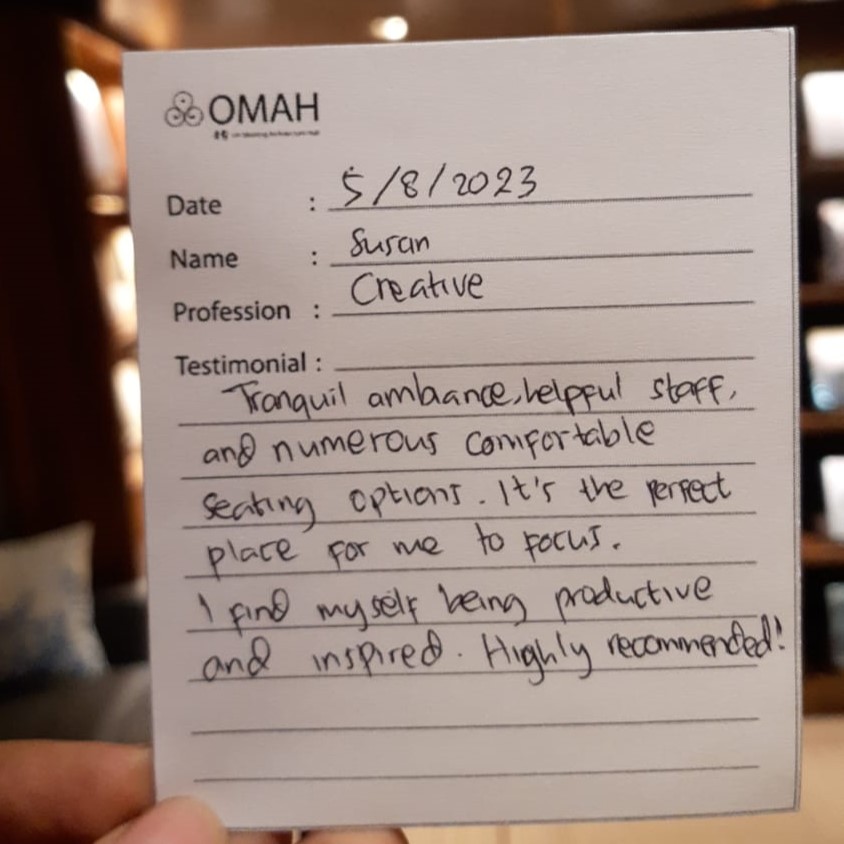 OMAH
Date : 5/8/2023
Name : Susan
Profession : Creative
Testimonial :
Tranquil ambiance, helpful staff,
and numerous comfortable
seating options. It's the perfect
place for me to focus.
I find myself being productive
and inspired. Highly recommended!